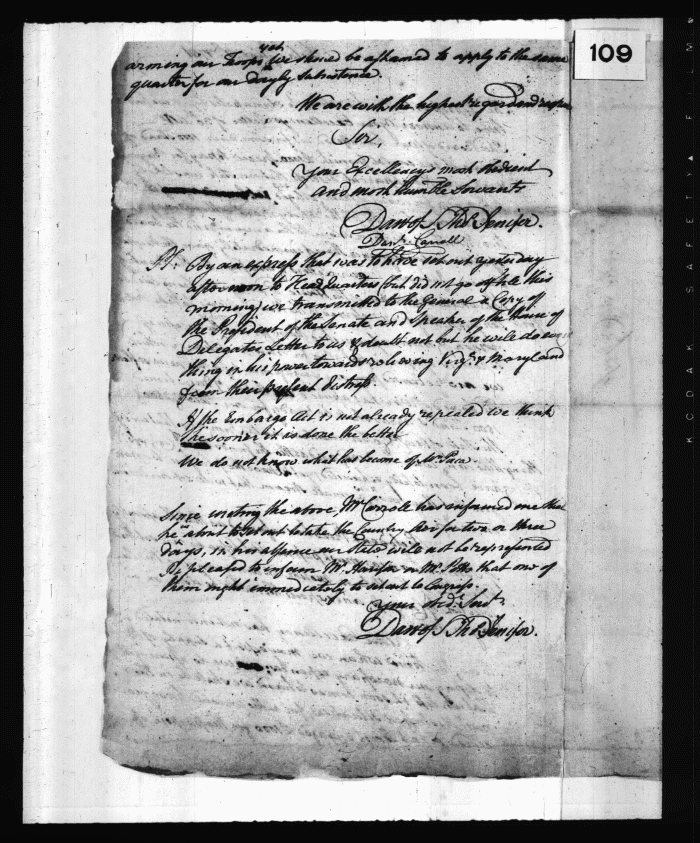 109
yet
arming our Troops we shoud be ashamed to apply to the same
quarter for our dayly Subsistence.
We are with the highest regard and respect
Sir,
Your Excellencys most Obedient
and most humble Servants
Dan of St Thos Jenifer.
Danl Carroll
Ps. By an express that was to have set out yesterday
afternoon to Head Quarters (but did not go off till this
morning) we transmitted to the General a Copy of
the President of the Senate and Speaker of the House of
Delegates Letter to us & doubt not but he will do every
thing in his power towards relieving Virga & Maryland
from their present distress.
If the Embargo Act is not already repealed we think
the sooner it is done the better
We do not know what has become of Mr Paca.
Since writing the above, Mr Carroll has informed me that
he is about to set out to take the Country Air for two or three
days, in his absence our State will not be represented
Be pleased to inform Mr Hanson or Mr Potts that one of
them might immediately to set out to Congress.
Your Obdt Servt
Dan of St Thos Jenifer.
KODAK SAFETY FILM